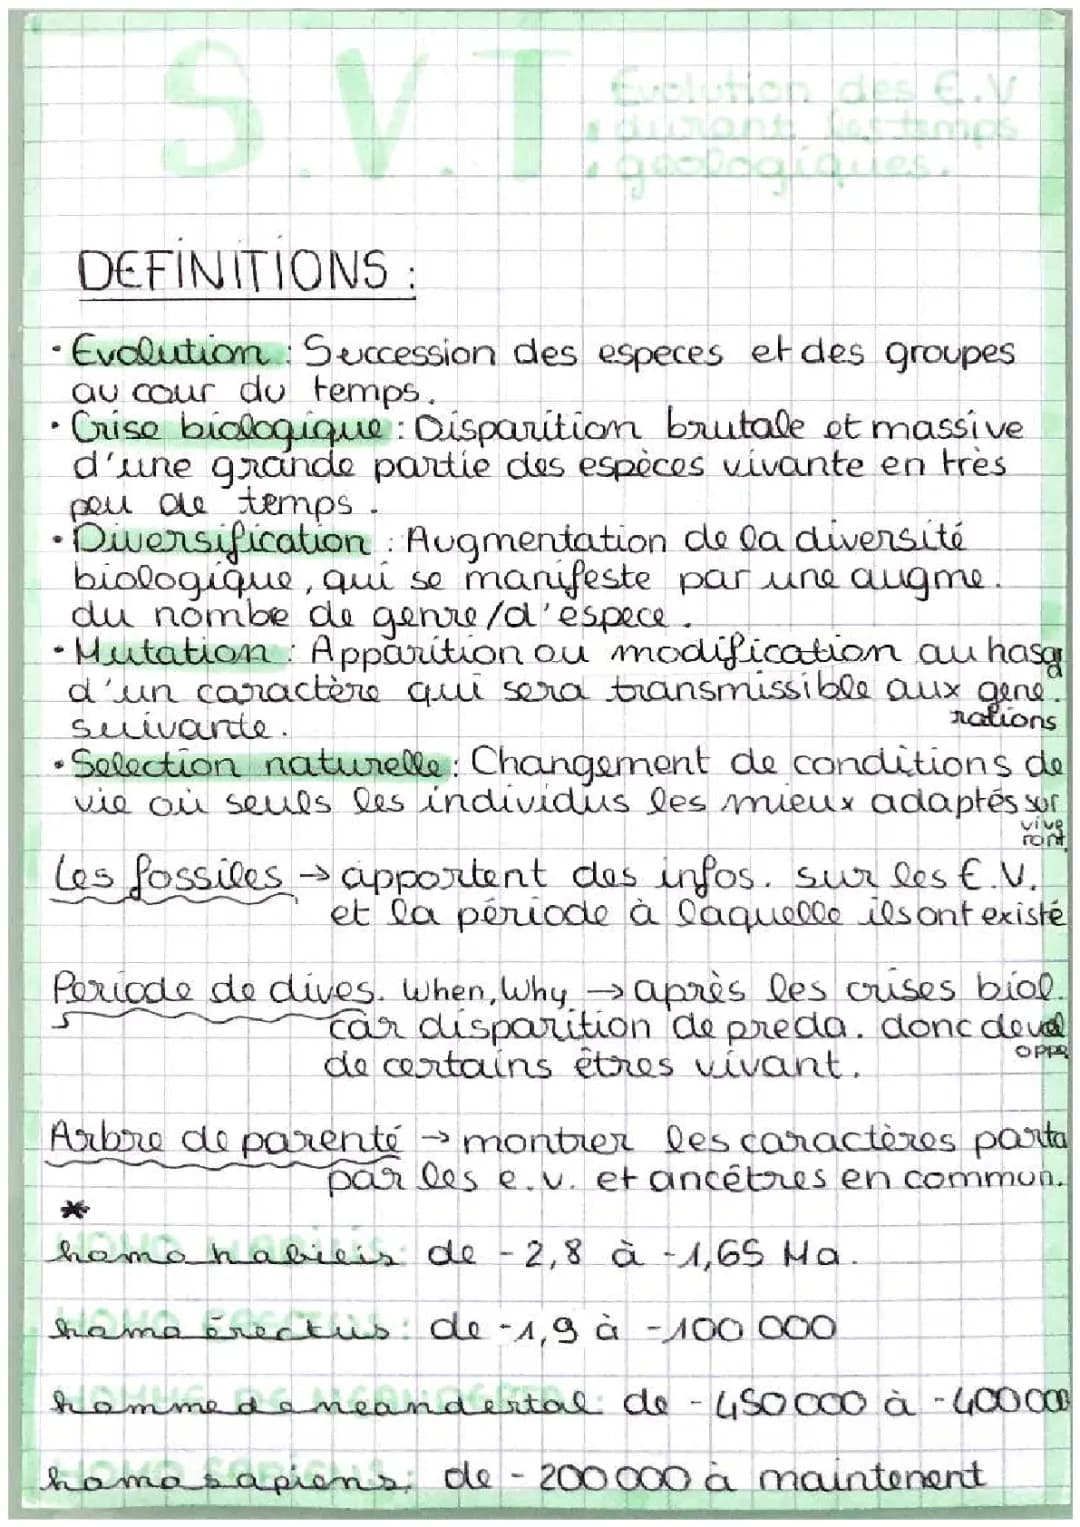 S.V.T
Evolution des E.V
durant les temps
géologiques.
DEFINITIONS :
• Evolution : Succession des especes et des groupes
au cour du temps.
• Crise biologique : Disparition brutale et massive
d'une grande partie des espèces vivante en très
peu de temps.
• Diversification : Augmentation de la diversité
biologique, qui se manifeste par une augme.
du nombe de genre/d'espece.
• Mutation : Apparition ou modification au hasard
d'un caractère qui sera transmissible aux géné.
rations
suivante.
• Selection naturelle : Changement de conditions de
vie où seuls les individus les mieux adaptés sur
vive
ront
Les fossiles → apportent des infos. sur les E.V.
et la période à laquelle ils ont existé
Periode de dives. When, Why → après les crises biol.
car disparition de preda. donc devel
oppe
de certains êtres vivant.
Arbre de parenté → montrer les caractères parta
par les e.v. et ancêtres en commun.
*
homo habilis : de -2,8 à -1,65 Ma.
homo érectus : de -1,9 à -100 000
homme de néandertal : de -450 000 à -400 000
homo sapiens : de -200 000 à maintenent